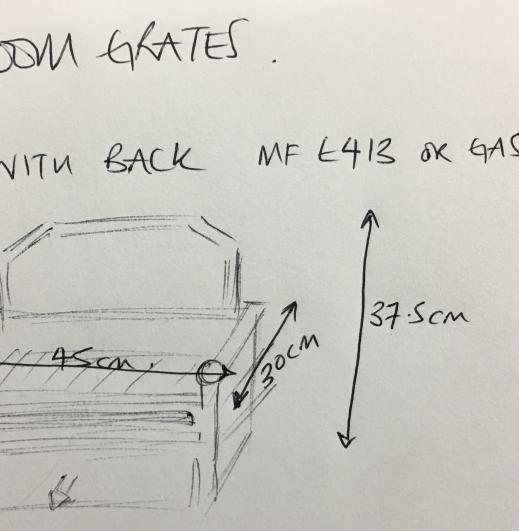 OOM GRATES.
WITH BACK MF £413 OR GAS
37.5CM
45cm.
30CM